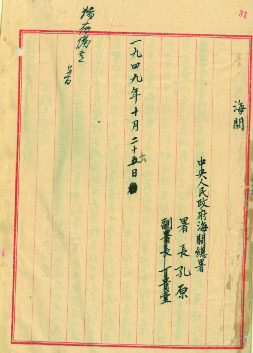 海關
中央人民政府海關總署
署長孔原
副署長丁貴堂
一九四九年十月二十五日
六